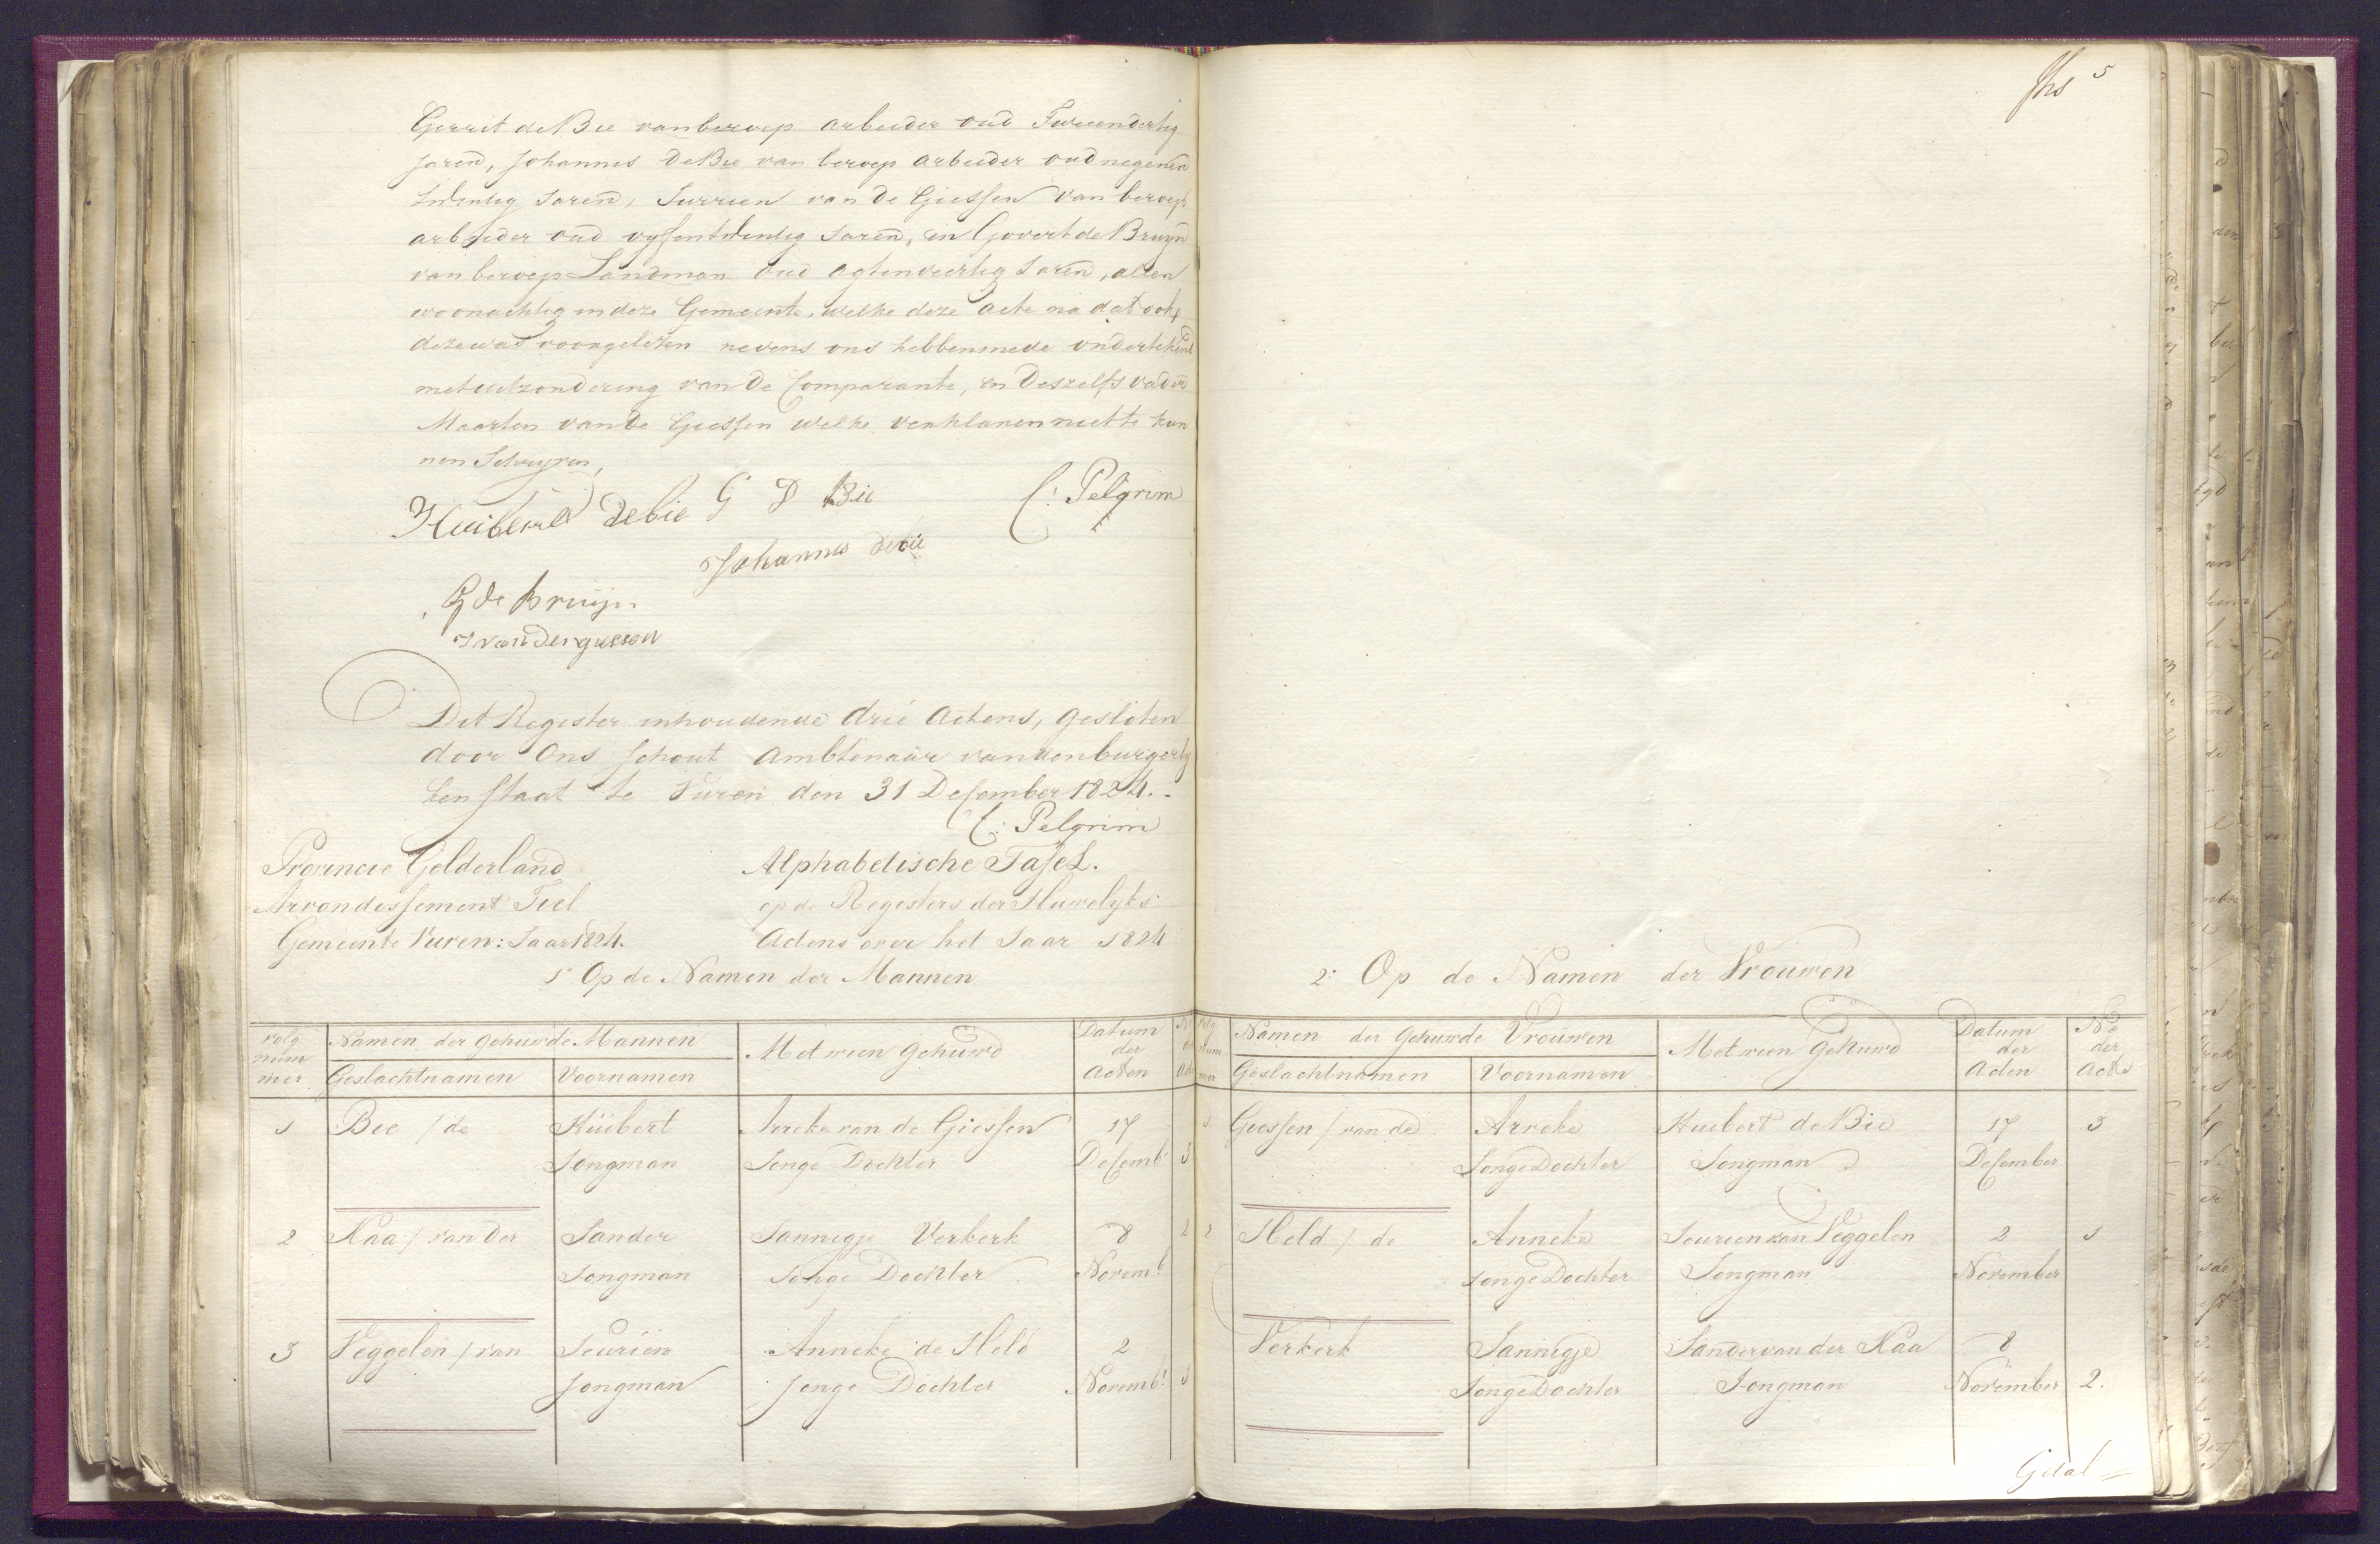 Gerrit de Bie van beroep arbeider oud Tweendertig
Jaren, Johannes de Bie van beroep arbeider oud negenen
twentig Jaren, Jurrien van de Giessen van beroep
arbeider oud vyfentwentig Jaren, en Govert de Bruyn
van beroep Landman oud agtenveertig Jaren, allen
woonachtig in deze Gemeente, welke deze acte na dat ook
deze was voorgelezen nevens ons hebben mede ondertekend
met uitzondering van de Comparante, en deszelfs vader
Maarten van de Giessen welke verklaren niet te kun
nen Schryven,
Huibert debie G D Bie C: Pelgrim
Johannes debie
G de Bruijn
J van der giessen
Dit Register inhoudende drie Actens, gesloten
door Ons Schout Ambtenaar van den burgerly
ken Staat te Vuren den 31 December 1824.
C: Pelgrim
Provincie Gelderland
Arrondissement Tiel
Gemeente Vuren: Jaar 1824.
Alphabetische Tafel.
op de Registers der Huwelyks
Actens over het Jaar 1824
1° Op de Namen der Mannen
volg nummer Namen der gehuwde Mannen Met wien gehuwd Datum der Acten No der Acte
Geslachtnamen Voornamen
1 Bie / de Huibert Anneke van de Giessen 17
Jongman Jonge Dochter Decemb 3
2 Kaa / van der Sander Jannigje Verkerk 8 2
Jongman Jonge Dochter Novemb
3 Veggelen / van Jeurien Anneke de Held 2
Jongman Jonge Dochter Novemb 1
5
2: Op de Namen der Vrouwen
volg nummer Namen der Gehuwde Vrouwen Met wien Gehuwd Datum der Acten No der Acte
Geslachtnamen Voornamen
1 Giessen / van de Anneke Huibert de Bie 17 3
Jonge Dochter Jongman December
2 Held / de Anneke Jeurien van Veggelen 2 1
Jonge Dochter Jongman November
Verkerk Jannigje Sander van der Kaa 8
Jonge Dochter Jongman November 2.